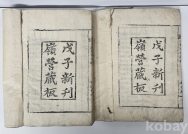 戊子新刊
嶺營藏板
戊子新刊
嶺營藏板
kobay